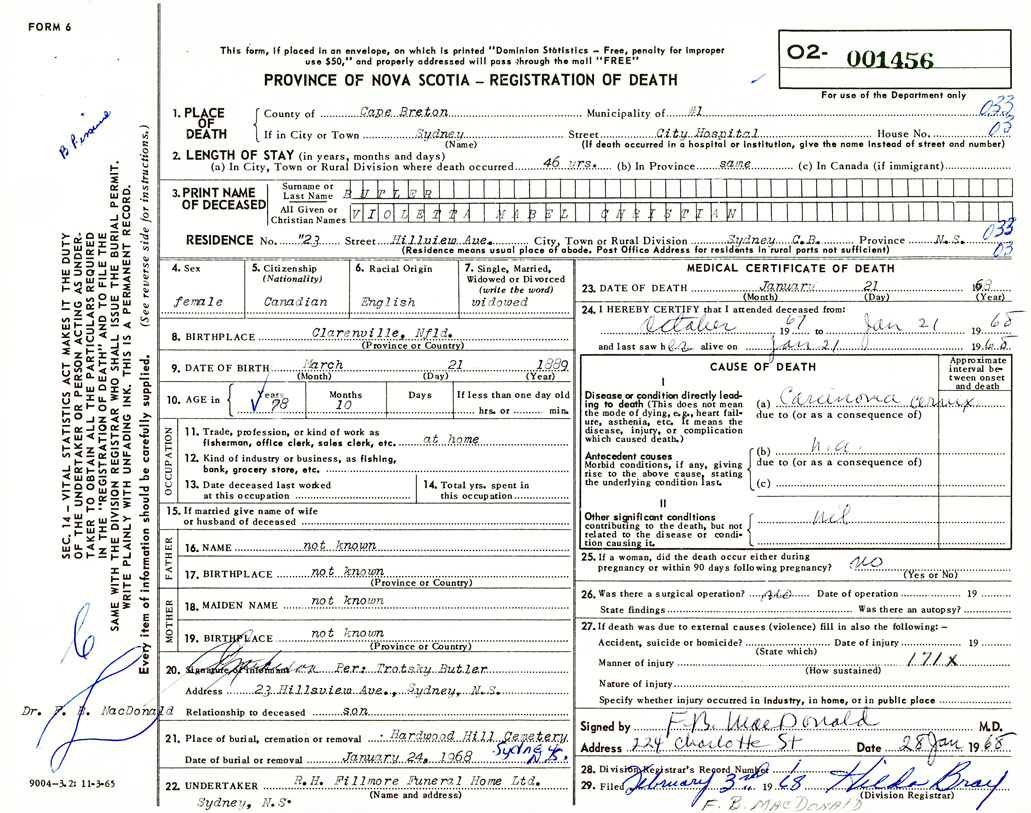 FORM 6
This form, if placed in an envelope, on which is printed "Dominion Statistics – Free, penalty for improper
use $50," and properly addressed will pass through the mail "FREE"
PROVINCE OF NOVA SCOTIA – REGISTRATION OF DEATH
02- 001456
For use of the Department only
1. PLACE OF DEATH
County of Cape Breton Municipality of #1 033
If in City or Town Sydney Street City Hospital House No. 03
(Name) (If death occurred in a hospital or institution, give the name instead of street and number)
2. LENGTH OF STAY (in years, months and days)
(a) In City, Town or Rural Division where death occurred 46 yrs. (b) In Province same (c) In Canada (if immigrant)
3. PRINT NAME OF DECEASED
Surname or Last Name BUTLER
All Given or Christian Names VIOLETTA MABEL CHRISTIAN
RESIDENCE No. "23 Street Hillview Ave. City, Town or Rural Division Sydney C.B. Province N.S. 033
(Residence means usual place of abode. Post Office Address for residents in rural parts not sufficient) 03
4. Sex
female
5. Citizenship
(Nationality)
Canadian
6. Racial Origin
English
7. Single, Married,
Widowed or Divorced
(write the word)
widowed
8. BIRTHPLACE Clarenville, Nfld.
(Province or Country)
9. DATE OF BIRTH March 21 1889
(Month) (Day) (Year)
10. AGE in
Years Months Days If less than one day old
78 10 hrs. or min.
OCCUPATION
11. Trade, profession, or kind of work as
fisherman, office clerk, sales clerk, etc. at home
12. Kind of industry or business, as fishing,
bank, grocery store, etc.
13. Date deceased last worked
at this occupation
14. Total yrs. spent in
this occupation
15. If married give name of wife
or husband of deceased
FATHER
16. NAME not known
17. BIRTHPLACE not known
(Province or Country)
MOTHER
18. MAIDEN NAME not known
19. BIRTHPLACE not known
(Province or Country)
20. Signature of informant Per: Trotsky Butler
Address 23 Hillsview Ave., Sydney, N.S.
Relationship to deceased son
21. Place of burial, cremation or removal Hardwood Hill Cemetery
Sydney N.S.
Date of burial or removal January 24, 1968
22. UNDERTAKER R.H. Fillmore Funeral Home Ltd.
(Name and address)
Sydney, N.S.
MEDICAL CERTIFICATE OF DEATH
23. DATE OF DEATH January 21 1968
(Month) (Day) (Year)
24. I HEREBY CERTIFY that I attended deceased from:
October 1967 to Jan 21 1968
and last saw her alive on Jan 21 1968
CAUSE OF DEATH
Approximate
interval be-
tween onset
and death
I
Disease or condition directly lead-
ing to death (This does not mean
the mode of dying, e.g., heart fail-
ure, asthenia, etc. It means the
disease, injury, or complication
which caused death.)
(a) Carcinoma cervix
due to (or as a consequence of)
Antecedent causes
Morbid conditions, if any, giving
rise to the above cause, stating
the underlying condition last.
(b) n.a.
due to (or as a consequence of)
(c)
II
Other significant conditions
contributing to the death, but not
related to the disease or condi-
tion causing it.
nil
25. If a woman, did the death occur either during
pregnancy or within 90 days following pregnancy? no
(Yes or No)
26. Was there a surgical operation? no Date of operation 19
State findings Was there an autopsy?
27. If death was due to external causes (violence) fill in also the following: –
Accident, suicide or homicide? Date of injury 19
(State which)
Manner of injury 171x
(How sustained)
Nature of injury
Specify whether injury occurred in Industry, in home, or in public place
Signed by F.B. MacDonald M.D.
Address 224 Charlotte St Date 28 Jan 1968
28. Division Registrar's Record Number 1
29. Filed February 3rd 1968 Hilda Bray
(Division Registrar)
F. B. MACDONALD
SEC. 14 – VITAL STATISTICS ACT MAKES IT THE DUTY
OF THE UNDERTAKER OR PERSON ACTING AS UNDER-
TAKER TO OBTAIN ALL THE PARTICULARS REQUIRED
IN THE "REGISTRATION OF DEATH" AND TO FILE THE
SAME WITH THE DIVISION REGISTRAR WHO SHALL ISSUE THE BURIAL PERMIT.
WRITE PLAINLY WITH UNFADING INK. THIS IS A PERMANENT RECORD.
Every item of information should be carefully supplied. (See reverse side for instructions.)
Dr. F. B. MacDonald
9004–3.2: 11-3-65